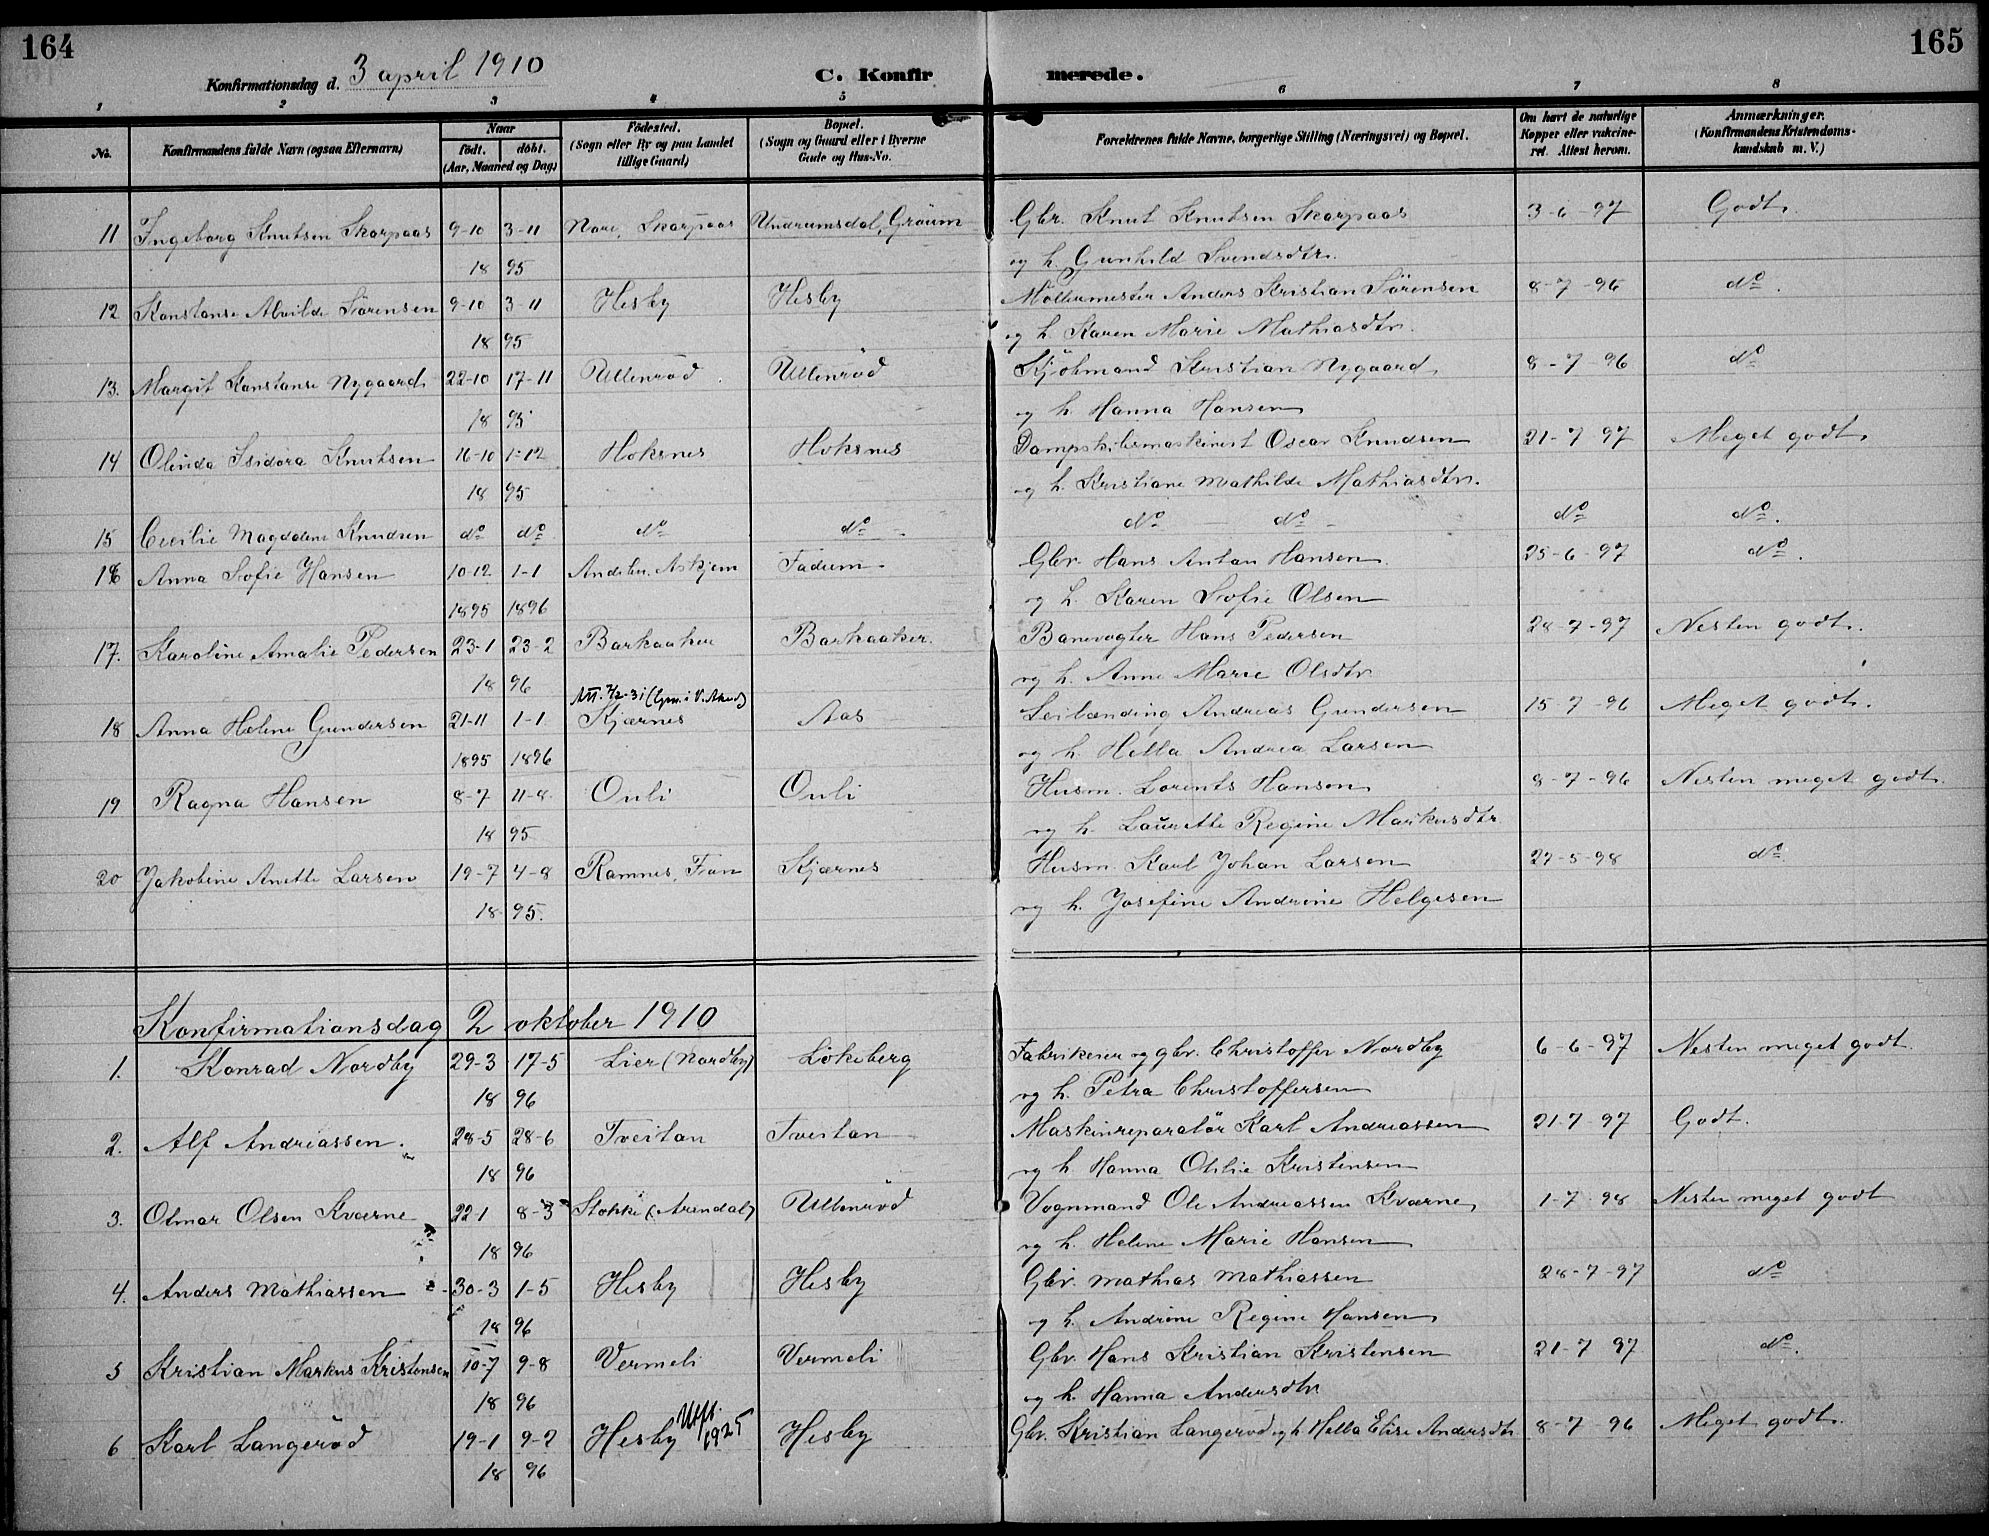 164
165
Konfirmationsdag d. 3 april 1910
C. Konfir merede.
1 2 3 4 5 6 7 8
No.
Konfirmandens fulde Navn (ogsaa Efternavn)
Naar
født. døbt.
(Aar, Maaned og Dag)
Fødested.
(Sogn eller By og paa Landet
tillige Gaard)
Bopæl.
(Sogn og Gaard eller i Byerne
Gade og Hus-No.
Forældrenes fulde Navne, borgerlige Stilling (Næringsvei) og Bopæl.
Om havt de naturlige
Kopper eller vakcine-
ret. Attest herom.
Anmærkninger.
(Konfirmandens Kristendoms-
kundskab m. V.)
11 Ingeborg Knutsen Skarpaas 9-10 3-11 Nore, Skarpaas Undrumsdal, Graum Gbr. Knut Knutsen Skarpaas 3-6-97 Godt.
18 95 og h. Gunhild Svendsdtr.
12 Konstanse Alvilde Sørensen 9-10 3-11 Hesby Hesby Møllermester Anders Kristian Sørensen 8-7-96 do.
18 95 og h. Karen Marie Mathiasdtr.
13. Margit Konstanse Nygaard 22-10 17-11 Ullenrød Ullenrød Kjøbmand Kristian Nygaard 8-7-96 do
18 95 og h Hanna Hansen
14 Olinda Isidora Knutsen 16-10 1-12 Hoksnes Hoksnes Dampskibsmaskinist Oscar Knudsen 21-7-97 Meget godt.
18 95 og h. Kristiane Mathilde Mathiasdtr.
15 Cecilie Magdalene Knudsen do do do do do do do do.
16 Anna Sofie Hansen 10-12 1-1 Andebu, Askjem Fadum Gbr. Hans Anton Hansen 25-6-97 do.
1895 1896 og h. Karen Sofie Olsen
17. Karoline Amalie Pedersen 23-1 23-2 Barkaaker Barkaaker. Banevogter Hans Pedersen 28-7-97 Nesten godt.
18 96 og h. Anne Marie Olsdtr
18 Anna Helene Gundersen 21-11 1-1 Kjærnes Aas Leilænding Andreas Gundersen 15-7-96 Meget godt.
1895 1896 og h. Hella Andrea Larsen
19 Ragna Hansen 8-7 11-8 Ouli Ouli Husm. Lorents Hansen 8-7-96 Nesten meget godt.
18 95 og h. Laurette Regine Markusdtr
20 Jakobine Anette Larsen 19-7 4-8 Ramnes, Fran Kjærnes Husm. Karl Johan Larsen 27-5-98 do
18 95. og h. Josefine Andrine Helgesen
Konfirmationsdag 2 oktober 1910
1. Konrad Nordby 29-3 17-5 Lier (Nordby) Løkeberg Fabrikeier og gbr. Christoffer Nordby 6-6-97 Nesten meget godt.
18 96 og h. Petra Christoffersen
2. Alf Andreassen. 28-5 28-6 Tveitan Tveitan Maskinreparatør Karl Andreassen 21-7-97 Godt.
18 96 og h Hanna Othlie Kristensen
3. Olmar Olsen Kværne 22-1 8-3 Stokke (Arendal) Ullenrød Vognmand Ole Andreassen Kværne 1-7-98 Nesten meget godt
18 96 og h. Helene Marie Hansen
4. Anders Mathiassen 30-3 1-5 Hesby Hesby Gbr. Mathias Mathiassen 28-7-97 do
18 96 og h. Andrine Regine Hansen
5 Kristian Markus Kristensen 10-7 9-8 Vermeli Vermeli Gbr. Hans Kristian Kristensen 21-7-97 do.
18 96 og h. Hanna Andersdtr
6 Karl Langerød 19-1 9-2 Hesby Utfl. 1925 Hesby Gbr. Kristian Langerød og h Hella Elise Andersdtr 8-7-96 Meget godt.
18 96